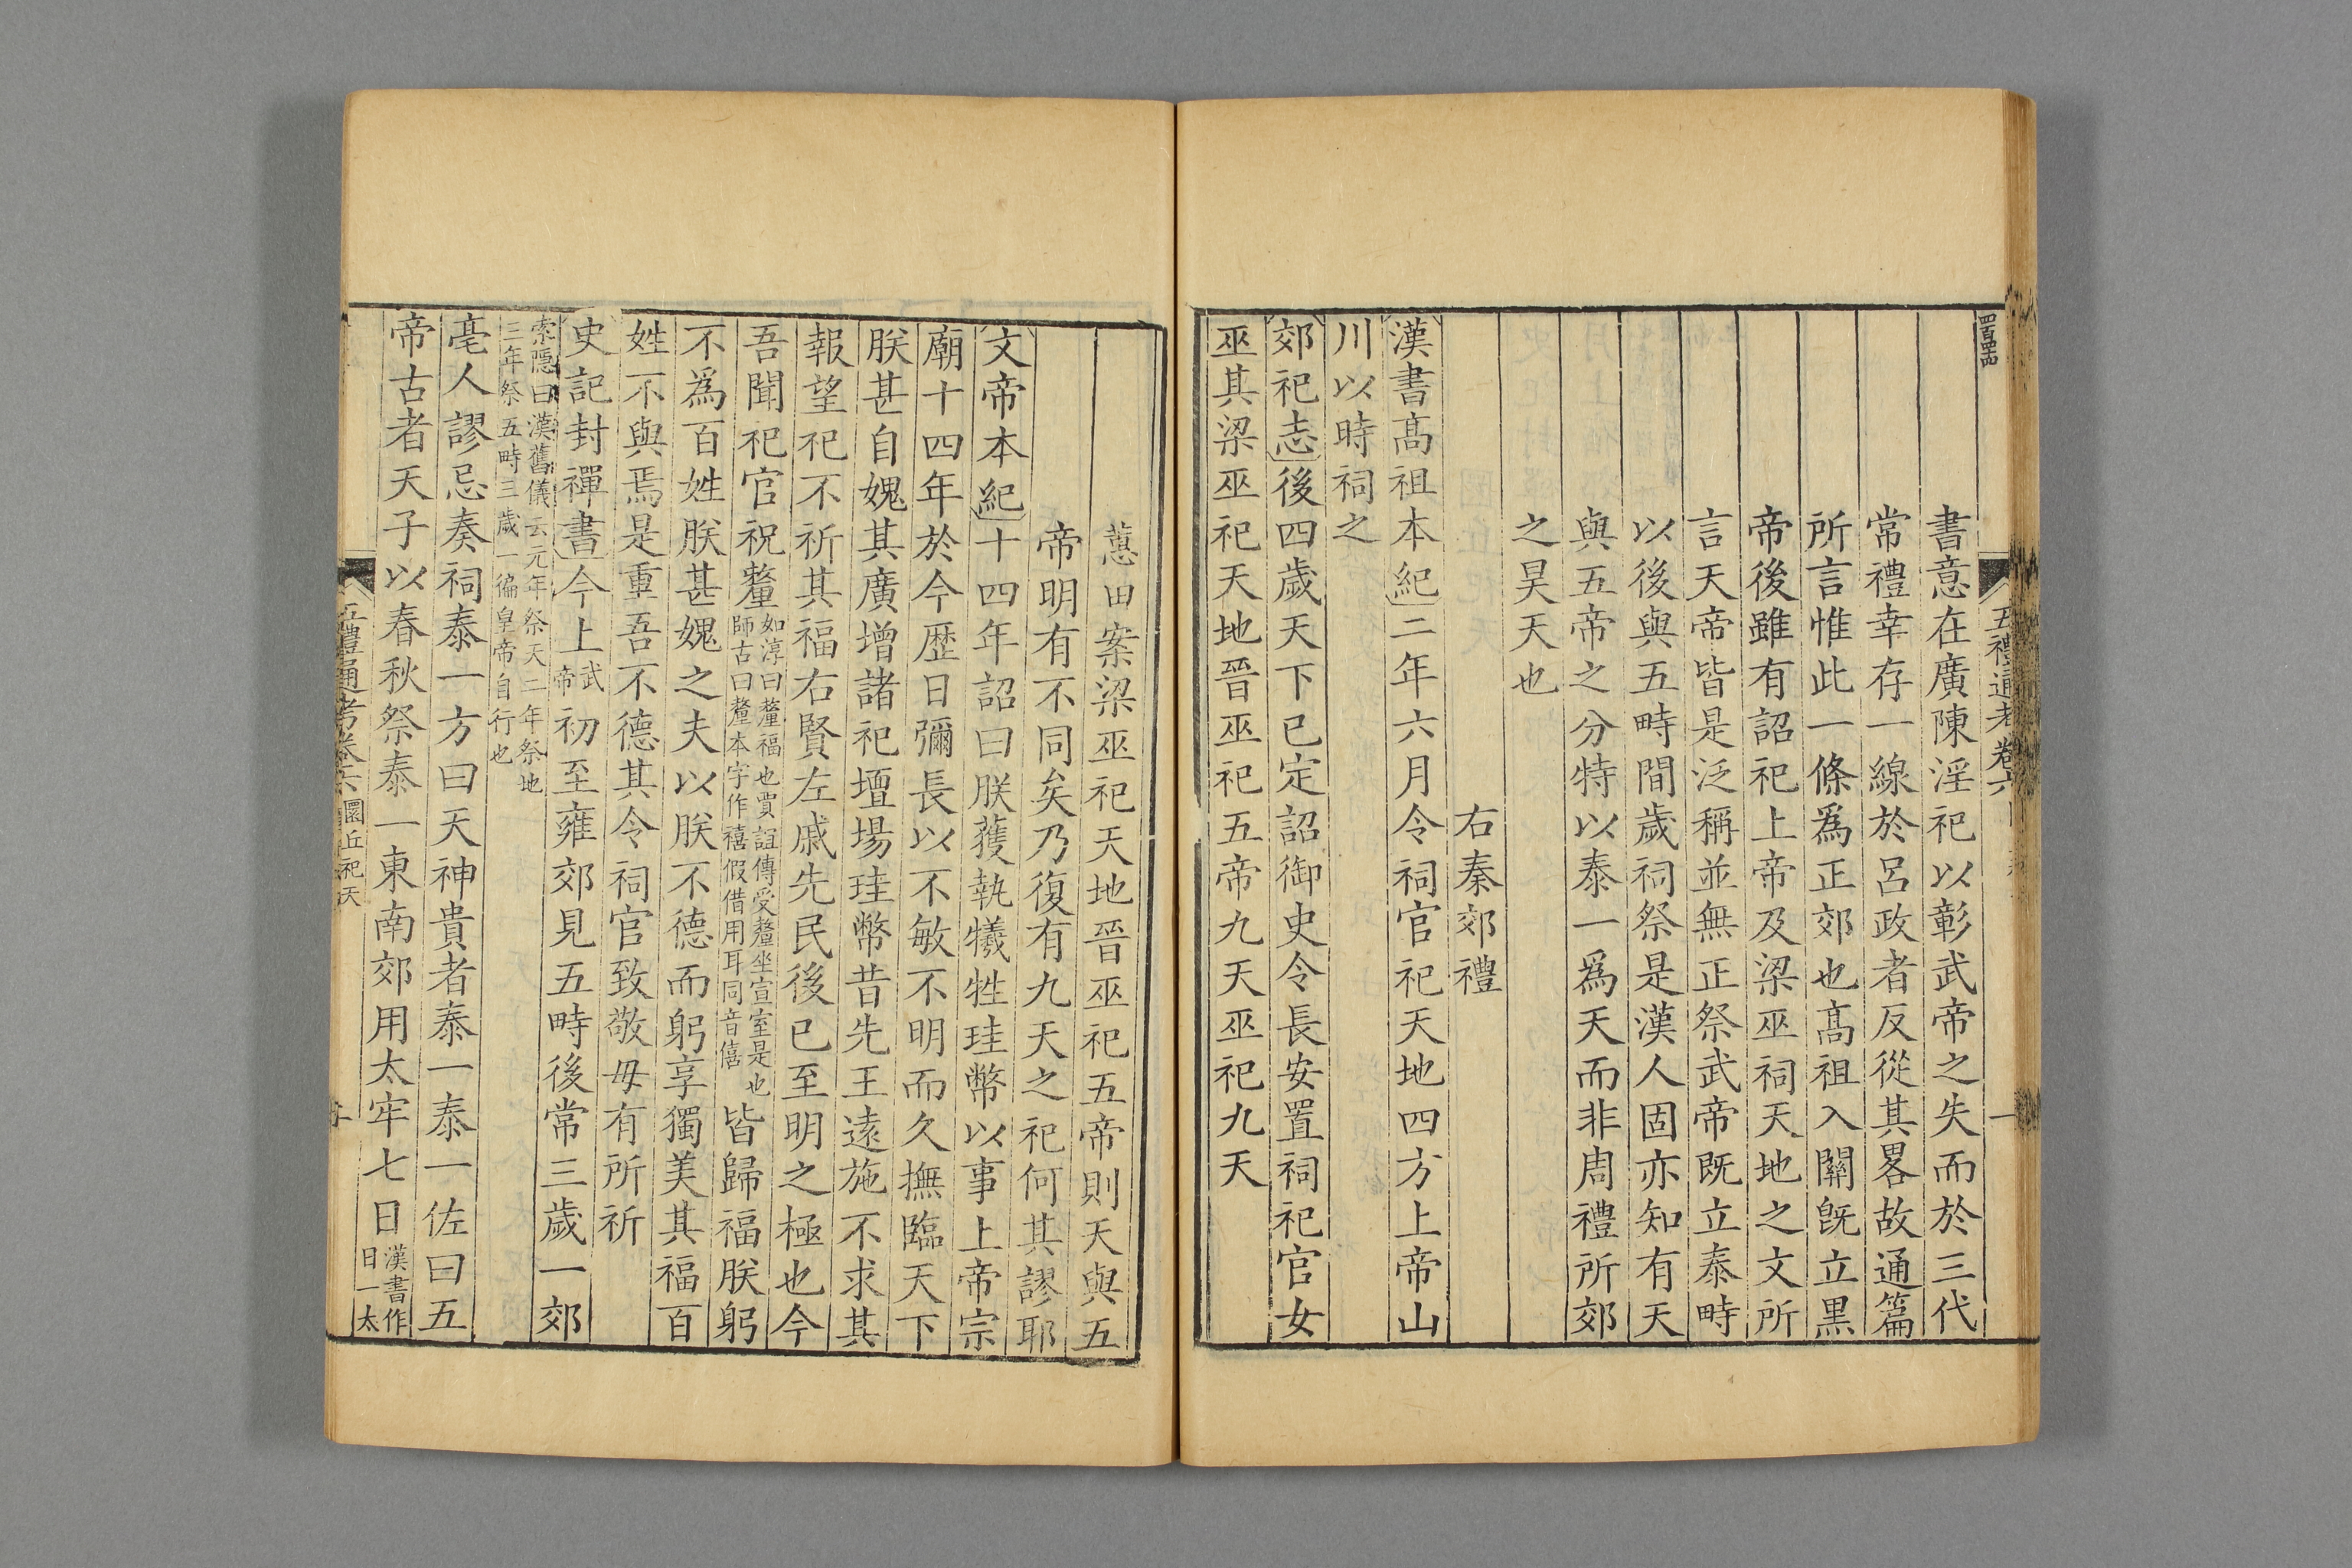 五禮通考卷六
一
書意在廣陳淫祀以彰武帝之失而於三代
常禮幸存一線於呂政者反從其畧故通篇
所言惟此一條爲正郊也髙祖入關旣立黒
帝後雖有詔祀上帝及梁巫祠天地之文所
言天帝皆是泛稱並無正祭武帝旣立泰畤
以後與五畤間歲祠祭是漢人固亦知有天
與五帝之分特以泰一爲天而非周禮所郊
之昊天也
右秦郊禮
漢書髙祖本紀二年六月令祠官祀天地四方上帝山
川以時祠之
郊祀志後四歲天下已定詔御史令長安置祠祀官女
巫其梁巫祀天地晉巫祀五帝九天巫祀九天
蕙田案梁巫祀天地晉巫祀五帝則天與五
帝明有不同矣乃復有九天之祀何其謬耶
文帝本紀十四年詔曰朕獲執犧牲珪幣以事上帝宗
廟十四年於今歷日彌長以不敏不明而久撫臨天下
朕甚自媿其廣增諸祀壇場珪幣昔先王遠施不求其
報望祀不祈其福右賢左戚先民後已至明之極也今
吾聞祀官祝釐如淳曰釐福也賈誼傳受釐坐宣室是也
師古曰釐本字作禧假借用耳同音僖皆歸福朕躬
不爲百姓朕甚媿之夫以朕不德而躬享獨美其福百
姓不與焉是重吾不德其令祠官致敬毋有所祈
史記封禪書今上武
帝初至雍郊見五畤後常三歲一郊
索隱曰漢舊儀云元年祭天二年祭地
三年祭五畤三歲一徧皇帝自行也
亳人謬忌奏祠泰一方曰天神貴者泰一泰一佐曰五
帝古者天子以春秋祭泰一東南郊用太牢七日漢書作
日一太
五禮通考卷六 圜丘祀天